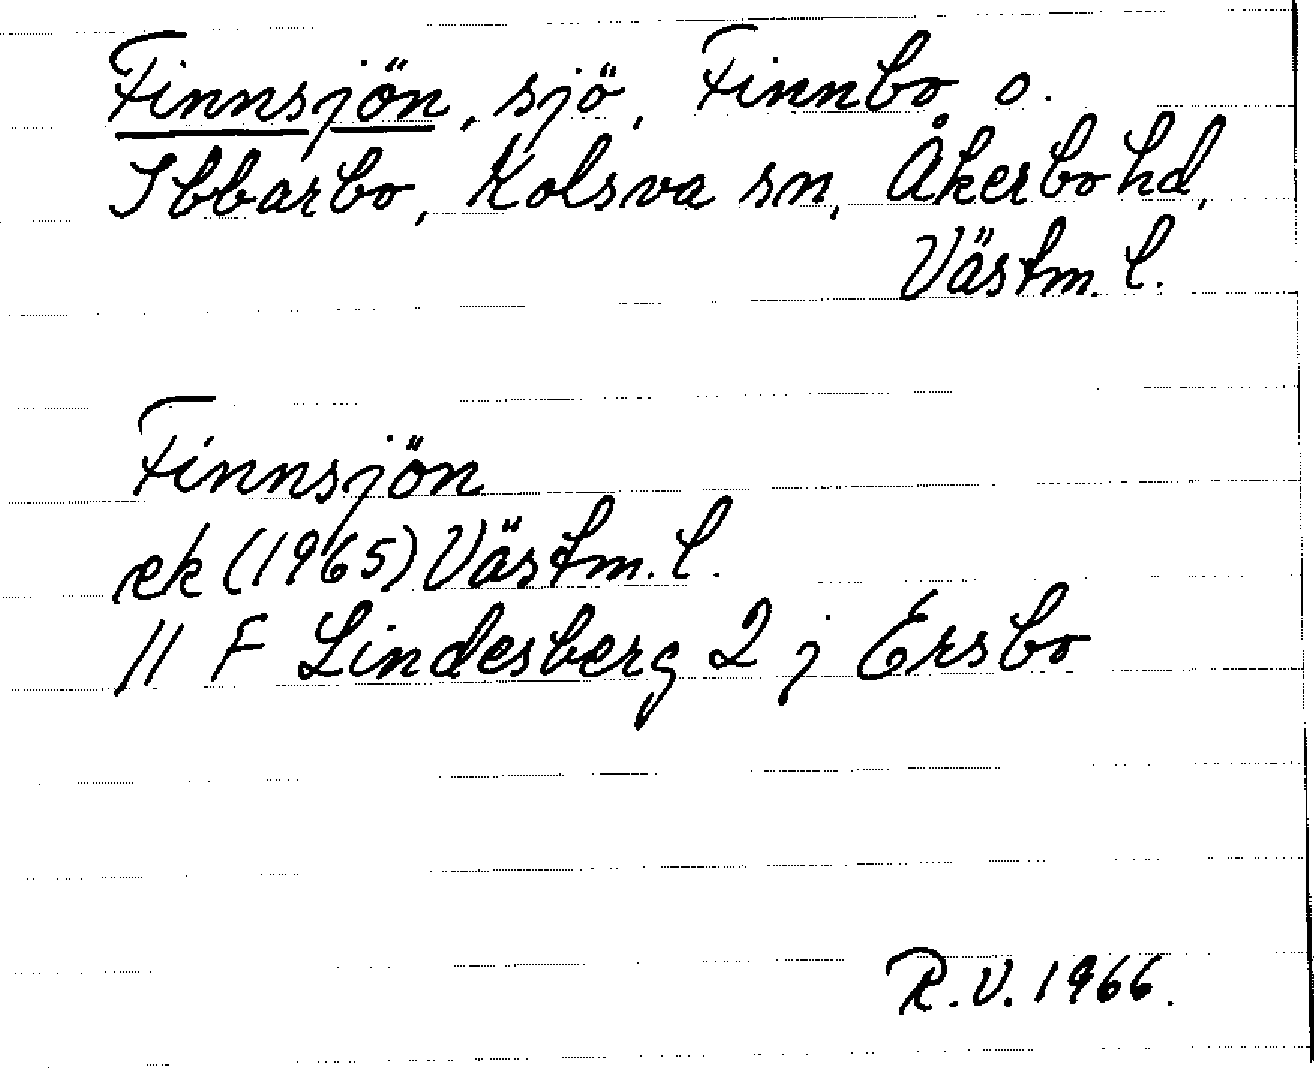 Finnsjön, sjö, Finnbo o.
Ibbarbo, Kolsva sn, Åkerbo hd,
Västm. l.
Finnsjön
ek (1965) Västm. l.
11 F Lindesberg 2 j Ersbo
R.V. 1966.